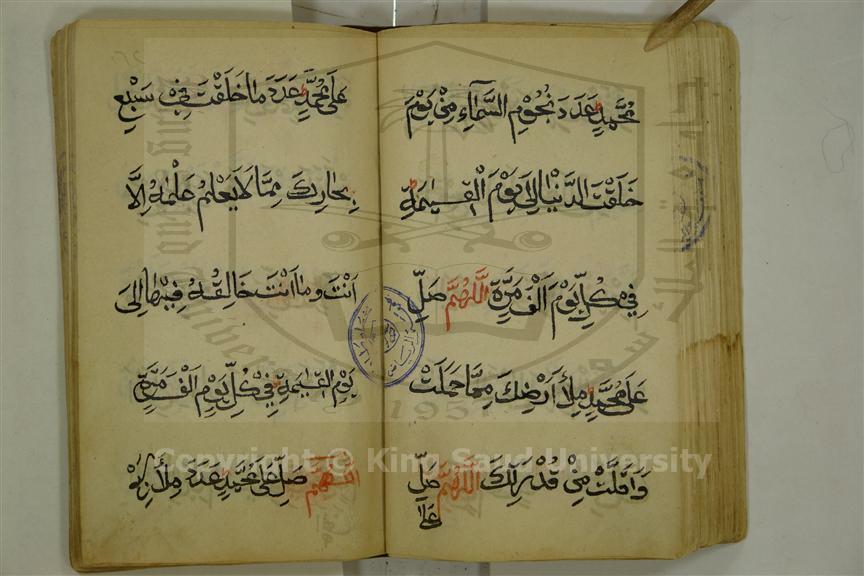 مُحَمَّدٍ عَدَدَ نُجُوْمِ السَّمَآءِ مِنْ يَوْمَ
خَلَقْتَ الدُّنْيَا اِلٰى يَوْمِ الْقِيٰمَةِ
فِيْ كُلِّ يَوْمٍ اَلْفَ مَرَّةٍ اَللّٰهُمَّ صَلِّ
عَلٰى مُحَمَّدٍ مِلْأَ اَرْضِكَ مِمَّا حَمَلَتْ
وَاَقَلَّتْ مِنْ قُدْرَتِكَ اَللّٰهُمَّ صَلِّ
على
عَلٰى مُحَمَّدٍ عَدَدَ مَا خَلَقْتَ فِيْ سَبْعِ
بِحَارِكَ مِمَّا لَا يَعْلَمُ عِلْمَهُ اِلَّا
اَنْتَ وَمَا اَنْتَ خَالِقُهُ فِيْهَا اِلٰى
يَوْمِ الْقِيٰمَةِ فِيْ كُلِّ يَوْمٍ اَلْفَ مَرَّةٍ
اَللّٰهُمَّ صَلِّ عَلٰى مُحَمَّدٍ عَدَدَ مِلْأَ
Copyright © King Saud University
1957